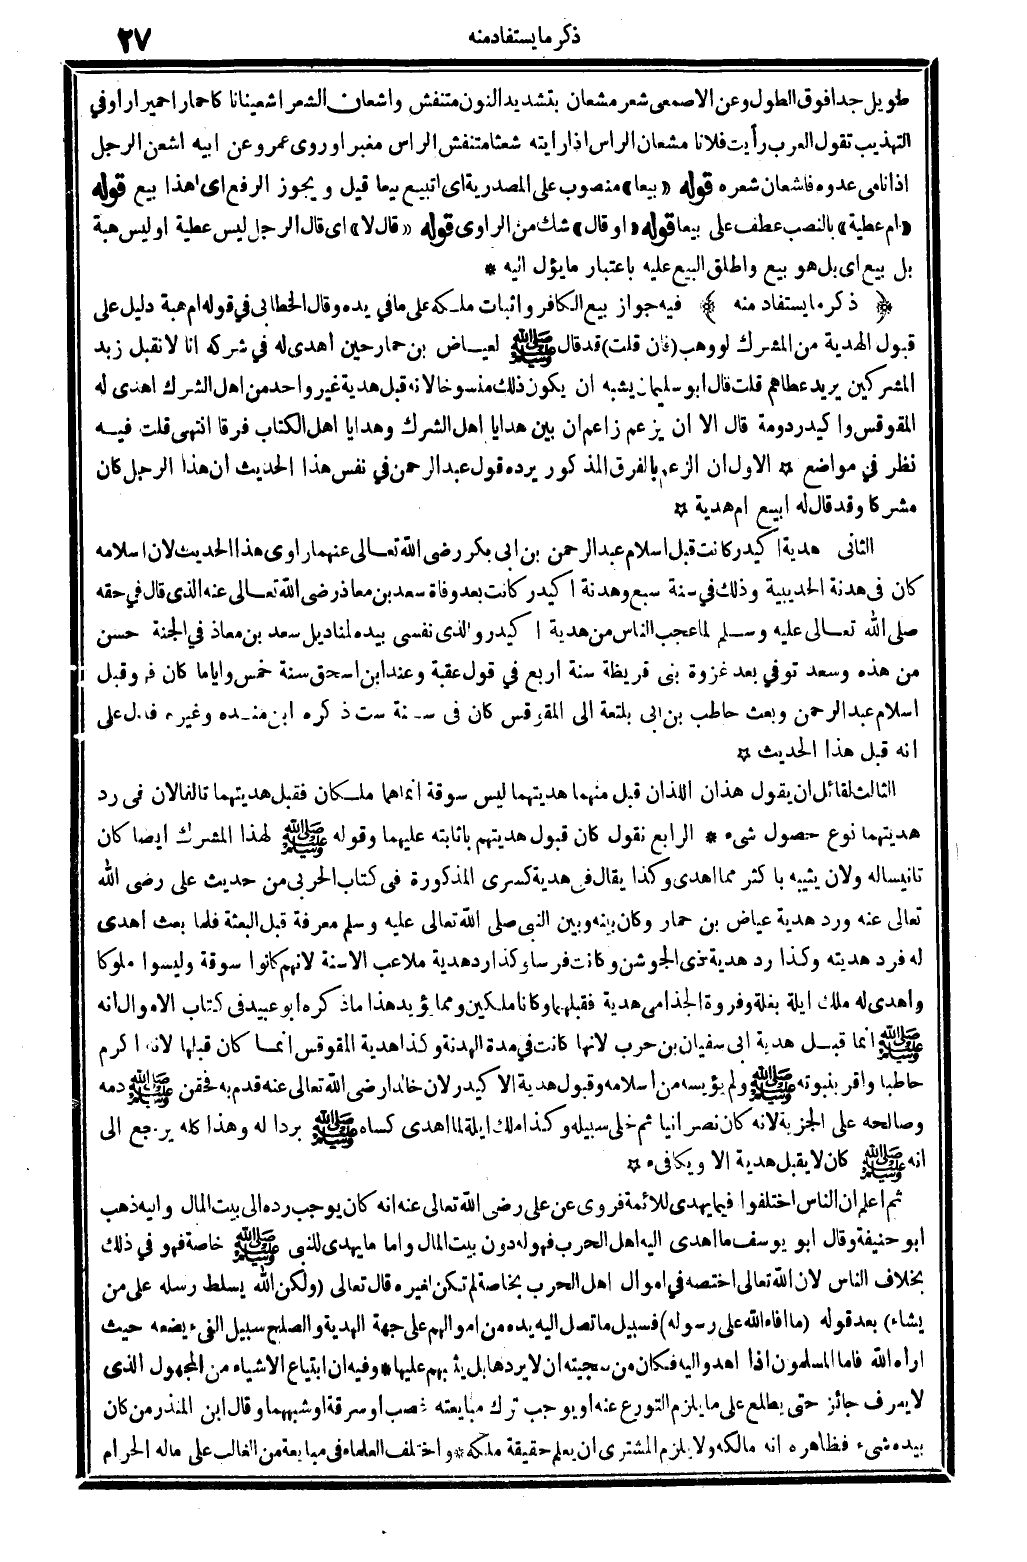 ذكر ما يستفاد منه
٢٧
طويل جدا فوق الطول وعن الاصمعى شعر مشعان بتشديد النون متنفش واشعان الشعر اشعينانا كاحمار احميرارا وفي
التهذيب تقول العرب رأيت فلانا مشعان الراس اذا رايته شعثا متنفش الراس مغبرا وروى عمرو عن ابيه اشعن الرجل
اذا نامى عدوه فاشعان شعره قوله «بيعا» منصوب على المصدرية اى اتبيع بيعا قيل ويجوز الرفع اى اهذا بيع قوله
«ام عطية» بالنصب عطف على بيعا قوله «او قال» شك من الراوى قوله «قال لا» اى قال الرجل ليس عطية او ليس هبة
بل بيع اى بل هو بيع واطلق البيع عليه باعتبار ما يؤل اليه *
﴿ ذكر ما يستفاد منه ﴾ فيه جواز بيع الكافر واثبات ملكه على ما في يده وقال الخطابى في قوله ام هبة دليل على
قبول الهدية من المشرك لو وهب (فان قلت) قد قال ﷺ لعياض بن حمار حين أهدى له في شركه انا لا نقبل زبد
المشركين يريد عطاهم قلت قال ابو سليمان يشبه ان يكون ذلك منسوخا لانه قبل هدية غير واحد من اهل الشرك اهدى له
المقوقس واكيدر دومة قال الا ان يزعم زاعم ان بين هدايا اهل الشرك وهدايا اهل الكتاب فرقا انتهى قلت فيه
نظر في مواضع * الاول ان الزعم بالفرق المذكور يرده قول عبد الرحمن في نفس هذا الحديث ان هذا الرجل كان
مشركا وقد قال له ابيع ام هدية *
الثانى هدية اكيدر كانت قبل اسلام عبد الرحمن بن ابى بكر رضى الله تعالى عنهما راوى هذا الحديث لان اسلامه
كان فى هدنة الحديبية وذلك في سنة سبع وهدنة اكيدر كانت بعد وفاة سعد بن معاذ رضى الله تعالى عنه الذى قال في حقه
صلى الله تعالى عليه وسلم لما عجب الناس من هدية اكيدر والذى نفسى بيده لمناديل سعد بن معاذ في الجنة حسن
من هذه وسعد توفي بعد غزوة بنى قريظة سنة اربع في قول عقبة وعند ابن اسحق سنة خمس واياما كان فهو قبل
اسلام عبد الرحمن وبعث حاطب بن ابى بلتعة الى المقوقس كان فى سنة ست ذكره ابن منده وغيره فدل على
انه قبل هذا الحديث *
الثالث لقائل ان يقول هذان اللذان قبل منهما هديتهما ليس سوقة انما هما ملكان فقبل هديتهما تالفا لان فى رد
هديتهما نوع حصول شىء * الرابع نقول كان قبول هديتهم باثابته عليهما وقوله ﷺ لهذا المشرك ايضا كان
تانيسا له ولان يثيبه باكثر مما اهدى وكذا يقال فى هدية كسرى المذكورة فى كتاب الحربى من حديث على رضى الله
تعالى عنه ورد هدية عياض بن حمار وكان بينه وبين النبى صلى الله تعالى عليه وسلم معرفة قبل البعثة فلما بعث اهدى
له فرد هديته وكذا رد هدية ذى الجوشن وكانت فرسا وكذا رد هدية ملاعب الاسنة لانهم كانوا سوقة وليسوا ملوكا
واهدى له ملك ايلة بغلة وفروة الجذامى هدية فقبلهما وكانا ملكين ومما يؤيد هذا ما ذكره ابو عبيد فى كتاب الاموال انه
ﷺ انما قبل هدية ابى سفيان بن حرب لانها كانت في مدة الهدنة وكذا هدية المقوقس انما كان قبلها لانه اكرم
حاطبا واقر بنبوته ﷺ ولم يؤيسه من اسلامه وقبول هدية الاكيدر لان خالدا رضى الله تعالى عنه قدم به فحقن ﷺ دمه
وصالحه على الجزية لانه كان نصرانيا ثم خلى سبيله وكذا ملك ايلة لما اهدى كساه ﷺ بردا له وهذا كله يرجع الى
انه ﷺ كان لا يقبل هدية الا ويكافىء *
ثم اعلم ان الناس اختلفوا فيما يهدى للائمة فروى عن على رضى الله تعالى عنه انه كان يوجب رده الى بيت المال واليه ذهب
ابو حنيفة وقال ابو يوسف ما اهدى اليه اهل الحرب فهو له دون بيت المال واما ما يهدى للنبى ﷺ خاصة فهو في ذلك
بخلاف الناس لان الله تعالى اختصه في اموال اهل الحرب بخاصة لم تكن لغيره قال تعالى (ولكن الله يسلط رسله على من
يشاء) بعد قوله (ما افاء الله على رسوله) فسبيل ما تصل اليه يده من اموالهم على جهة الهدية والصلح سبيل الفىء يضعه حيث
اراه الله فاما المسلمون اذا اهدوا اليه فكان من سجيته ان لا يردها بل يثيبهم عليها * وفيه ان ابتياع الاشياء من المجهول الذى
لا يعرف جائز حتى يطلع على ما يلزم التورع عنه او يوجب ترك مبايعته غصب او سرقة او شبههما وقال ابن المنذر من كان
بيده شىء فظاهره انه مالكه ولا يلزم المشترى ان يعلم حقيقة ملكه * واختلف العلماء في مبايعة من الغالب على ماله الحرام